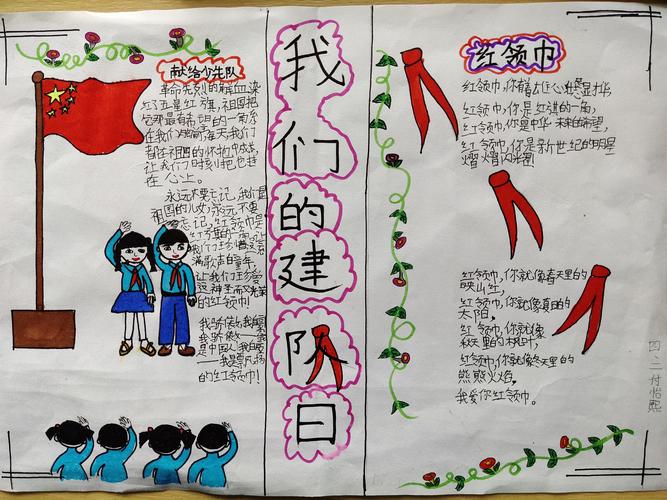 献给少先队
革命先烈的鲜血染
红了五星红旗,祖国把
它那最有希望的一角系
在我们胸前每天我们
都在祖国的怀抱中成长
让我们时刻把她
在心上。
永远不要忘记,我们是
祖国的儿女;永远不要
忘记,红领巾是
红旗的一角
我们
满歌声的童年,
让我们珍爱
这神圣而又光荣
的红领巾!
我骄傲,我
我骄傲
是中国
我是
的红领巾!
我们的建队日
红领巾
红领巾,你
红领巾,你是红旗的一角,
红领巾,你是中华未来的希望,
红领巾,你是新世纪的明星
熠熠闪光
红领巾,你就像春天里的
映山红,
红领巾,你就像夏日的
太阳,
红领巾,你就像
秋天里的枫叶,
红领巾,你就像冬天里的
熊熊火焰,
我爱你红领巾。
四.二 付怡熙